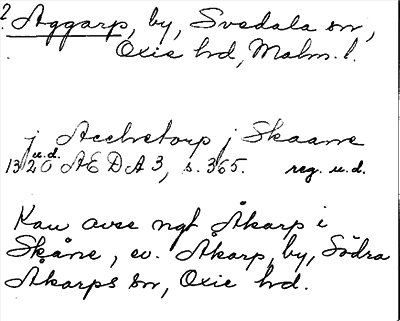 ? Aggarp, by, Svedala sn,
Oxie hd, Malm. l.
j Acchetorp j Skaane
u.d.
1320 AEDA 3, s. 365. reg. u.d.
Kan avse ngt Åkarp i
Skåne, ev. Åkarp, by, Södra
Åkarps sn, Oxie hd.